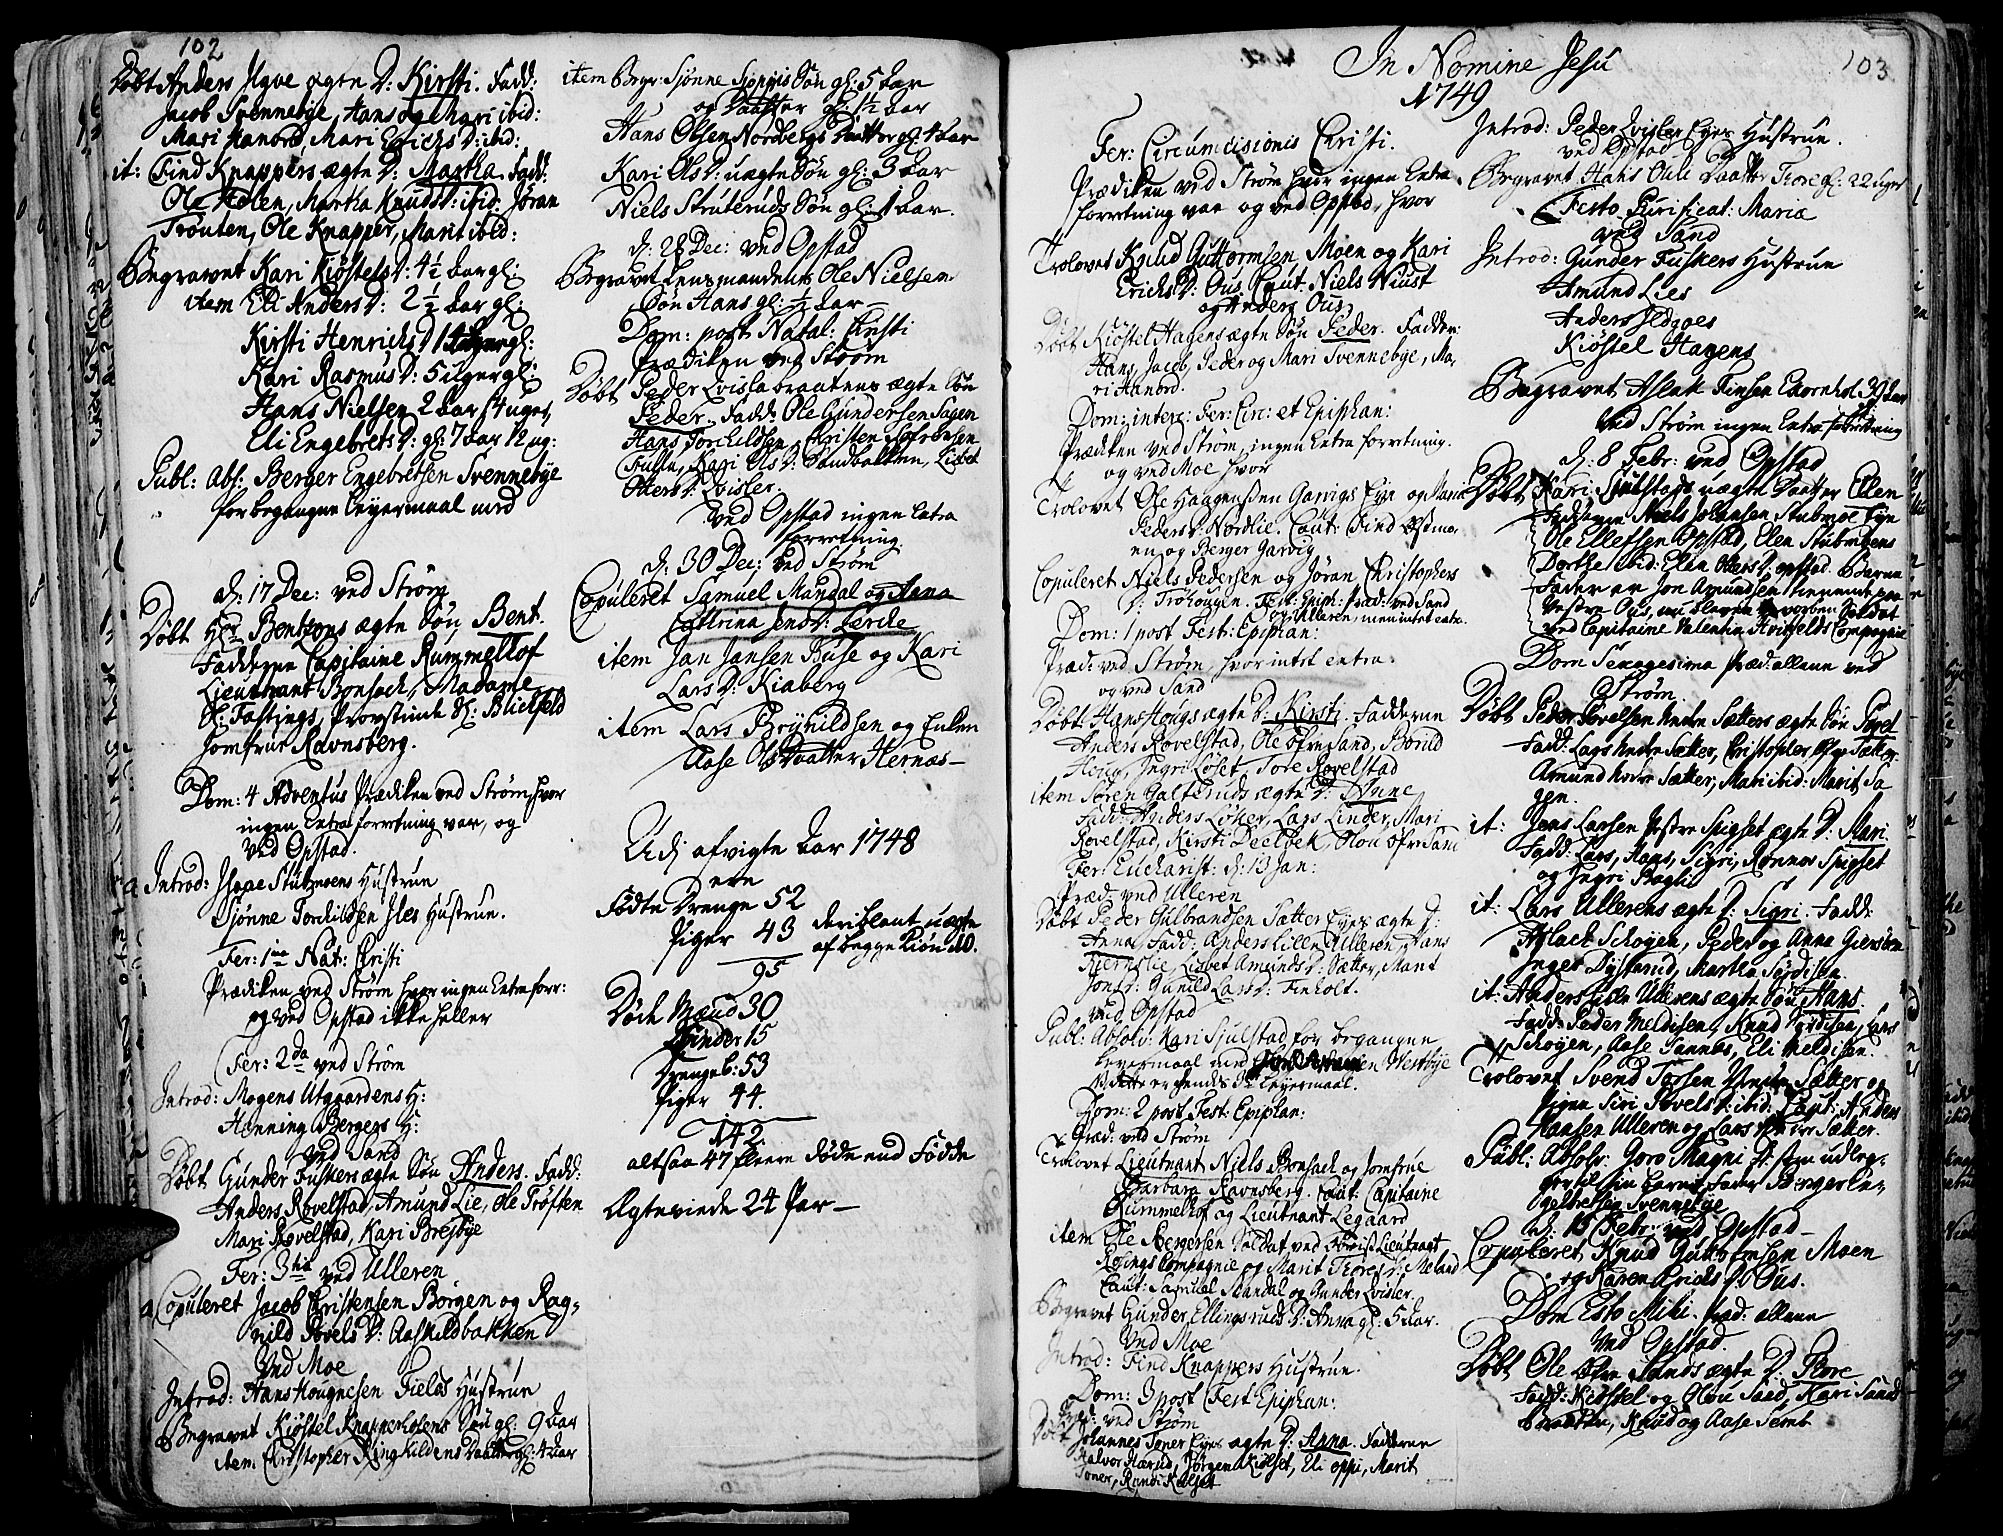 102
Døbt Anders Ilgve ægte D: Kirsti. Fadd:
Jacob Svennebye, Hans og Mari ibid:
Mari Hanord, Mari Erichs D: ibid:
it: Find Knappers ægte D: Martha. Fadd:
Ole Holen, Martha Knuds D: ibid: Jøran
Trouten, Ole Knapper, Marit ibid:
Begravet Kari Kiøstels D: 4½ Aar gl:
item Eli Anders D: 2½ Aar gl:
Kirsti Henrichs D: gl:
Kari Rasmus D: 5 uger gl:
Hans Nielsen 2 Aar 14 uger
Eli Engebrets D: gl: 7 Aar 12 ug:
Publ: Abs: Berger Engebretsen Svennebye
for begangne Leyermaal med
d: 17 Dec: ved Strøm
Døbt Hr Bentzons ægte Søn Bent.
Fadderne Capitaine Rummelhof
Lieutnant Bonsach, Madame
Sl: Fastings, Provstinde Sl: Blicfeld
Jomfrue Ravnsberg.
Dom: 4 Adventus Prædiken ved Strøm, hvor
ingen Extra forretning var, og
ved Opstad.
Introd: Stubmoens Hustrue
Siønne Torkildsen Hustrue.
Fer: 1ma Nat: Christi
Prædiken ved Strøm hvor ingen Extra forr:
og ved Opstad ikke heller
Fer: 2da ved Strøm
Introd: Mogens Utgaardens H:
Henning Bergers H:
ved Sand
Døbt Gunder Fuskers ægte Søn Anders. Fadd:
Anders Rovelstad, Amund Lie, Ole Trøften
Mari Rovelstad, Kari Bresbye
Fer: 3tia ved Ulleren
Copuleret Jacob Christensen Borgen og Rag=
nild Povels D: Aaskildbakken
ved Moe
Introd: Hans Hougnesen Fields Hustrue
Begravet Kiøstel Knapperholens Søn gl: 9 Aar
item Christopher Ringkildens Daatter gl: 4 Aar
item Begr: Siønne Søn gl: 5 Aar
og Daatter gl: 1½ Aar
Hans Olsen Nordbergs Daatter gl: 4 Aar
Kari Ols D: uægte Søn gl: 3 Aar
Niels Struteruds Søn gl: 1 Aar.
d: 28 Dec: ved Opstad
Begravet Lensmandens Ole Nielsen
Søn Hans gl: ½ Aar
Dom: post Natal: Christi
Prædiken ved Strøm
Døbt Peder Qvislabraatens ægte Søn
Peder. Fadd: Ole Gundersen Sagen
Hans Torchildsen, Christen Sofrensen
Fulle, Kari Ols D: Sandbakken, Lisbet
Otters D: Qvisler.
ved Opstad ingen Extra
forretning.
d: 30 Dec: ved Strøm
Copuleret Samuel Mandal og Anna
Cathrina Jens D: Lerche
item Jan Jansen Buse og Kari
Lars D: Kiaberg
item Lars Brynildsen og Enken
Aase Ols Daatter Hernæs
Udj afvigte Aar 1748
ere
Fødte Drenge 52
Piger 43 deriblant uægte
af begge Kiøn
95
Døde Mænd 30
Qvinder 15
Drengeb: 53
Piger 44.
142
altsaa 47 fleere døde end Fødde
Ægteviede 24 Par
103
In Nomine Jesu
1749
Fer: Circumcisionis Christi.
Prædiken ved Strøm hvor ingen Extra
forretning var og ved Opstad, hvor
Trolovet Knud Guttormsen Moen og Kari
Erichs D: Ous. Caut: Niels Niust
og Anders Ous
Døbt Kiøstel Hagens ægte Søn Peder. Fadder:
Hans, Jacob, Peder og Mari Svennebye, Ma-
ri Hanord.
Dom: interc: Fer: Circ: et Epiphan:
Prædiken ved Strøm, ingen Extra forretning.
og ved Moe hvor
Trolovet Ole Haagensen Garvigs Eye og Maria
Peders D: Nordlie. Caut: Find Østmo-
en, og Berger Garvig
Copuleret Niels Pedersen og Jøran Christophers
D: Trøhougen. Fest: Epiph: Præd: ved Sand
og Ulleren, men intet extra.
Dom: 1 post Fest: Epiphan:
Præd: ved Strøm, hvor intet extra.
og ved Sand
Døbt Hans Hougs ægte D: Kirsti. Fadderne
Anders Rovelstad, Ole øfre Sand, Borild
Houg, Ingri Løset, Tore Rovelstad
item Søren Galteruds ægte D: Anne.
Fadd: Anders Løker, Lars Linder, Mari
Rovelstad, Kirsti Deelbek, Olou øfre Sand
Fer: Eucharist: d: 13 Jan:
Præd: ved Ulleren
Døbt Peder Gulbrandsen Sætter Eyes ægte D:
Anna. Fadd: Anders lille Ulleren, Hans
Kiernslie, Lisbet Amunds D: Sætter, Marit
Jons D: Gunild Lars D: Finholt.
ved Opstad
Publ: Absolv: Kari Siulstad for begangne
Leyermaal med Westbye
Dette er hendes 3die Leyermaal.
Dom: 2 post Fest: Epiphan:
Præd: ved Strøm
Trolovet Lieutnant Niels Bonsach og Jomfrue
Barbara Ravnsberg. Caut: Capitaine
Rummelhof og Lieutnant Legaard
item Ole Bergersen Soldat ved Obrist Lieutnant
Rosings Compagnie og Marit Thores D: Meland
Caut: Samuel Mandal og Gunder Qvisler.
Begravet Gunder Ellingsruds D: Anna gl: 5 Aar.
ved Moe
Introd: Find Knappers Hustrue.
Dom: 3 post Fest Epiphan:
Præd: ved Strøm
Døbt Johannes Toner Eyes ægte D: Anna. Fadderne
Halvor Harud, Jørgen Kiølset, Eli oppi, Marit
Toner, Randi Kiølset
Introd: Peder Qvisler Eyes Hustrue.
ved Opstad
Begravet Hans Ouli Daatter Thore gl: 22 uger
Festo Purificat: Mariæ
ved Sand
Introd: Gunder Fuskers Hustrue
Amund Lies
Anders Ildgoes
Kiøstel Hagens
Begravet Aslak Finsen Ekornhol 39 Aar
ved Strøm ingen Extra forretning
d: 8 Febr: ved Opstad
Døbt Kari Siulstads uægte Daatter Ellen
Fadderne Niels Johansen Stubmoe Eye
Ole Ellefsen Opstad, Elen Stubmoens
Dorthe ibid: Elen Otters D: Opstad. Barne
Faderen er Jon Amundsen tienende paa
Vestre Ous, nu bleven hverven Soldat
ved Capitaine Valentin Hvitfelds Compagnie
Dom Sexagesima Præd: allene ved
Strøm.
Døbt Peder Povelsen Nedre Sætters ægte Søn Povel
Fadd: Lars Nedre Sætter, Christopher Øfre Sætter,
Amund Nedre Sætter, Mari ibid: Marit Sa
gen.
it: Jens Larsen Vestre Spigset ægte D: Mari.
Fadd: Lars, Hans, Sigri, Rønnov Spigset
og Ingri Bagli
it: Lars Ullerens ægte D: Sigri. Fadd:
Aslack Schoyen, Peder og Anna Giersøen
Inger Dystrud, Martha Sørdisen.
it: Anders lille Ullerens ægte Søn Hans.
Fadd: Peder Meldisen, Knud Nordisen, Lars
Schoyen, Aase Tannæs, Eli Meldisen.
Trolovet Svend Tarsen Nedre Sætter og
Pigen Siri Povels D: ibid: Caut: Anders
Hansen Ulleren og Lars Nedre Sætter.
Publ: Absolv: Goro Magni D: som udleg-
ger til sin Barne Fader Berger En-
gelbretsen Svennebye
d: 15 Febr: ved Opstad
Copuleret Knud Guttormsen Moen
og Karen Erichs D: Ous.
Dom Esto Mihi. Præd: allene
ved Opstad.
Døbt Ole Øfre Sands ægte D: Thore
Fadd: Kiøstel og Olou Sand, Kari Sand-
braaten, Knud og Aase Semb